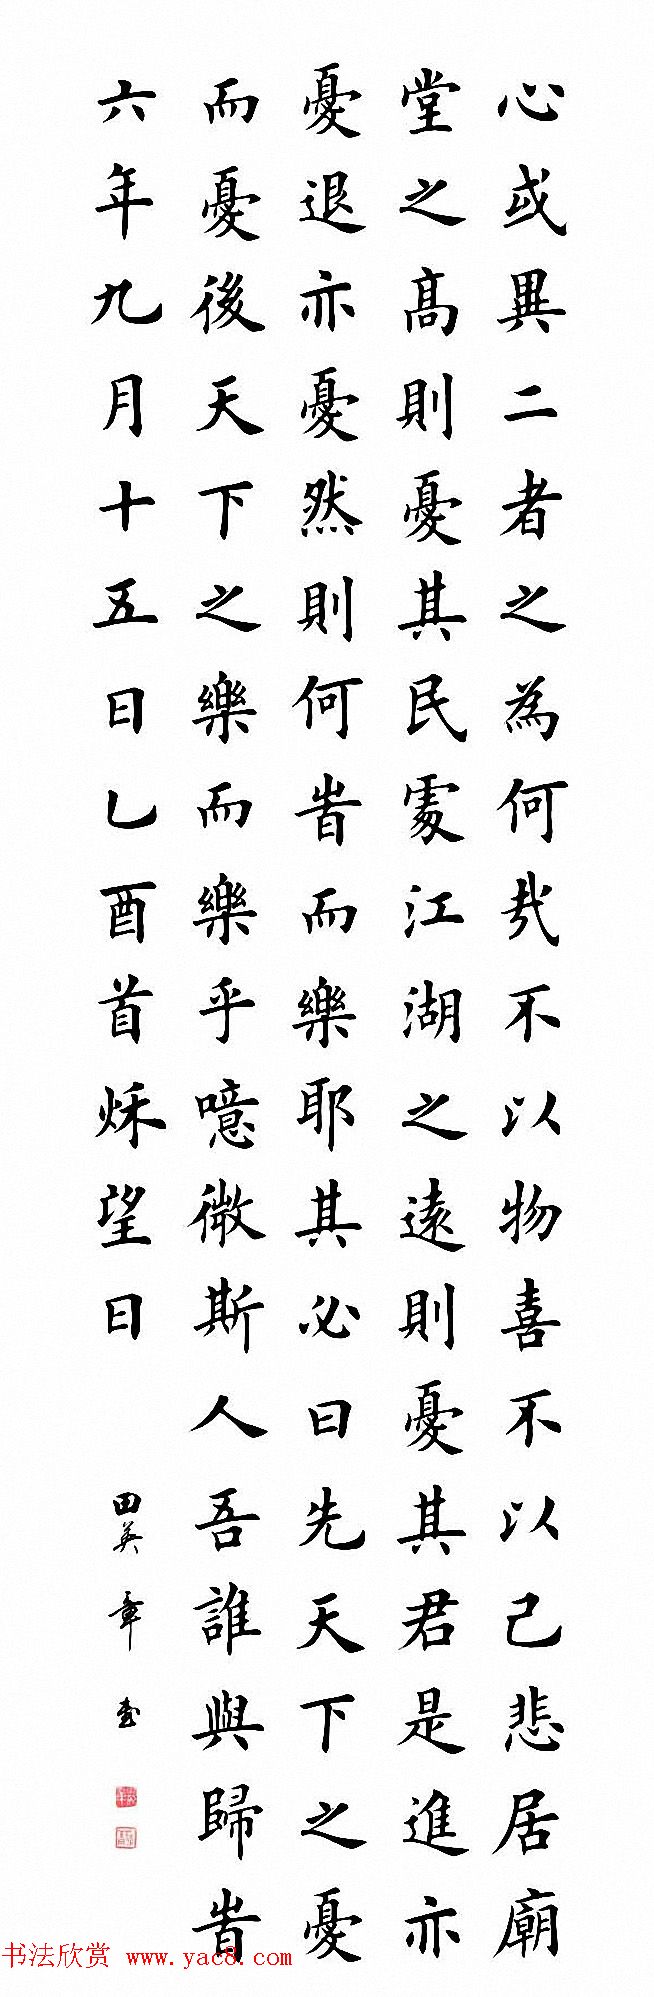 心或異二者之為何哉不以物喜不以己悲居廟
堂之髙則憂其民處江湖之遠則憂其君是進亦
憂退亦憂然則何旹而樂耶其必曰先天下之憂
而憂後天下之樂而樂乎噫微斯人吾誰與歸旹
六年九月十五日乙酉首秌望日
田英章書
书法欣赏 www.yac8.com